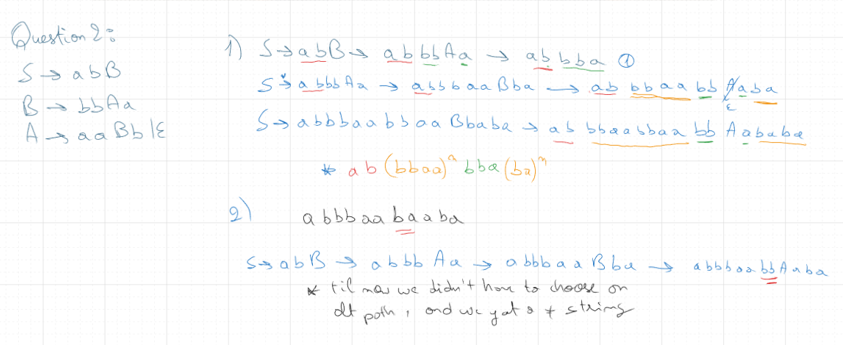 Question 2:
S → abB
B → bbAa
A → aaBb | ε
1) S → abB → abbbAa → abbba ①
S →* abbbAa → abbbaaBba → abbbaabbAaba
ε
S → abbbaabbaaBbaba → abbbaabbaabbAababa
* ab(bbaa)ⁿ bba(ba)ᵐ
2) abbbaabaaba
S → abB → abbbAa → abbbaaBba → abbbaabbAaba
* til now we didn't have to choose on
path, and we got a ≠ string